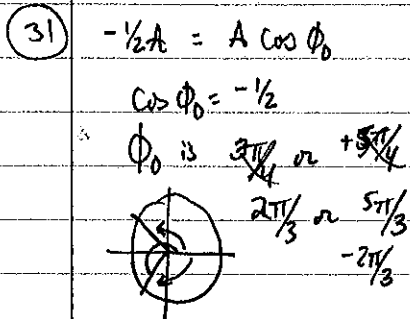 31 -½A = A cos ϕ₀
cos ϕ₀ = -½
ϕ₀ is 3π/4 or +5π/4
2π/3 or 5π/3
-2π/3